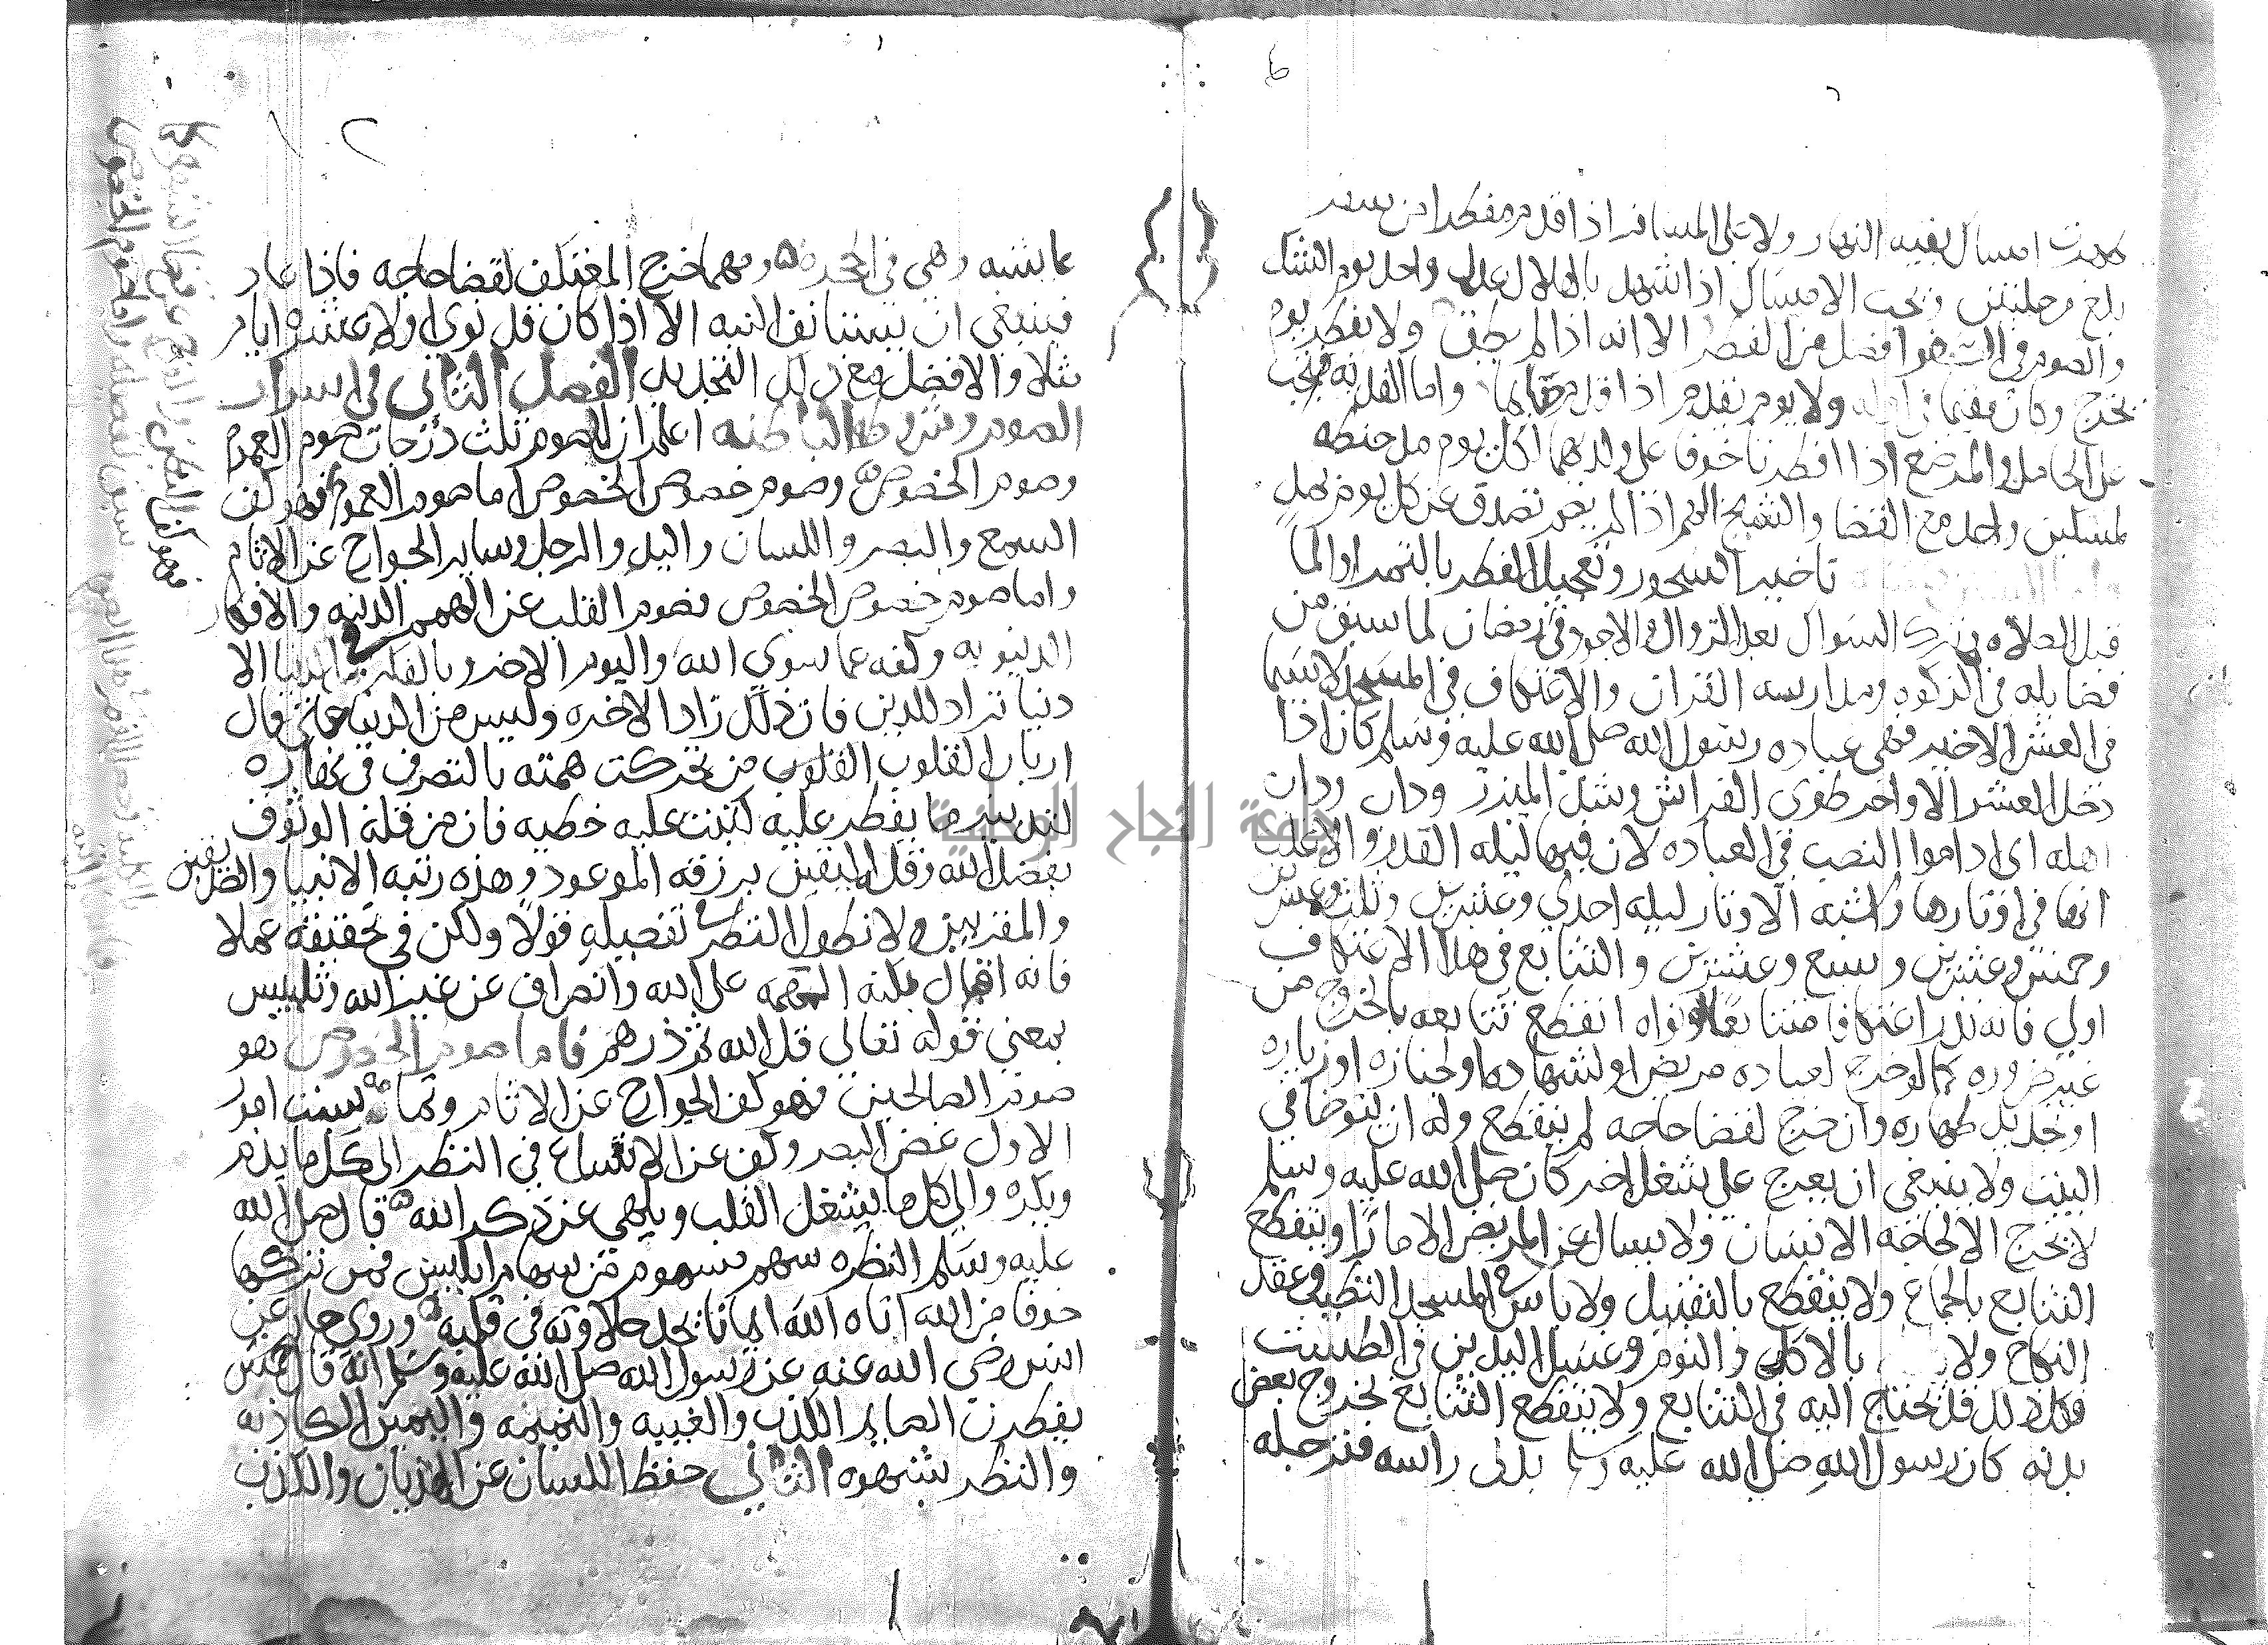 طهرت امساك بقيه النهار ولا على المسافر اذا قدم مفطرا من سفر
بلغ مرحلتين ويجب الامساك اذا شهد بالهلال عدل واحد يوم الشك
والصوم في السفر افضل من الفطر الا انه اذا لم يطق ولا يفطر يوم
يخرج وكان مقيما في اوله ولا يوم يقدم اذا قدم صايما واما الفديه فتجب
على الحامل والمرضع اذا افطرتا خوفا على ولديهما لكل يوم مد حنطه
لمسكين واحد مع القضا والشيخ الهرم اذا لم يصم تصدق عن كل يوم بمد
تاخير السحور وتعجيل الفطر بالتمر او الما
قبل الصلاه وترك السواك بعد الزوال والاجود في رمضان لما سبق من
فضايله في الزكوه ومدارسه القران والاعتكاف في المسجد لا سيما
في العشر الاخير فهي عباده رسول الله صلى الله عليه وسلم كان اذا
دخل العشر الاواخر طوى الفراش وشد الميزر وداب وداب
اهله اي اداموا النصب في العباده لان فيها ليله القدر والاغلب
انها في اوتارها واشبه الاوتار ليله احدي وعشرين وثلث وعشرين
وخمس وعشرين وسبع وعشرين والتتابع في هذا الاعتكاف
اولي فانه نذر اعتكافا متتابعا او نواه انقطع تتابعه بالخروج من
غير ضروره كما لو خرج لعياده مريض او لشهاده او لجنازه او زياره
او تجديد طهاره وان خرج لقضا حاجه لم ينقطع وله ان يتوضا في
البيت ولا ينبغي ان يعرج على شغل اخر كان صلى الله عليه وسلم
لا يخرج الا لحاجه الانسان ولا يسال عن المريض الا مارا وينقطع
التتابع بالجماع ولا ينقطع بالتقبيل ولا باس في المسجد التطيب وعقد
النكاح ولا بالاكل والنوم وغسل اليدين في الطست
فكل ذلك قد يحتاج اليه في التتابع ولا ينقطع التتابع بخروج بعض
بدنه كان رسول الله صلى الله عليه وسلم يدلى راسه فترجله
عايشه وهي في الحجره ومهما خرج المعتكف لقضا حاجه فاذا عاد
فينبغي ان يستانف النيه الا اذا كان قد نوي اولا عشره ايام
مثلا والافضل مع ذلك التجديد الفصل الثاني في اسرار
الصوم وشروطه الباطنه اعلم ان الصوم ثلث درجات صوم العموم
وصوم الخصوص وصوم خصوص الخصوص اما صوم العموم فهو كف
السمع والبصر واللسان واليد والرجل وساير الجوارح عن الاثام
واما صوم خصوص الخصوص فصوم القلب عن الهمم الدنيه والافكار
الدنيويه وكفه عما سوي الله واليوم الاخر وبالفكر في الدنيا الا
دنيا تراد للدين فان ذلك زاد الاخره وليس من الدنيا حتى قال
ارباب القلوب من تحركت همته بالتصرف في نهاره
لتدبير ما يفطر عليه كتبت عليه خطيه فان من قله الوثوق
بفضل الله وقله اليقين برزقه الموعود وهذه رتبه الانبيا والصديقين
والمقربين ولا نطول النظر في تفصيله قولا ولكن في تحقيقه عملا
فانه اقبال بكنه الهمه على الله وانصراف عن غير الله وتلبس
بمعني قوله تعالى قل الله ثم ذرهم فاما صوم الخصوص فهو
صوم الصالحين فهو كف الجوارح عن الاثام وتمامه بست امور
الاول غض البصر وكف عن الاتساع في النظر الى كل ما يذم
ويكره والي كل ما يشغل القلب ويلهي عن ذكر الله قال صلى الله
عليه وسلم النظره سهم مسموم من سهام ابليس فمن تركها
خوفا من الله اتاه الله ايمانا يجد حلاوته في قلبه وروي جابر عن
انس رضي الله عنه عن رسول الله صلى الله عليه وسلم انه قال خمس
يفطرن الصايم الكذب والغيبه والنميمه واليمين الكاذبه
والنظر بشهوه الثاني حفظ اللسان عن الهذيان والكذب
جامعة النجاح الوطنية